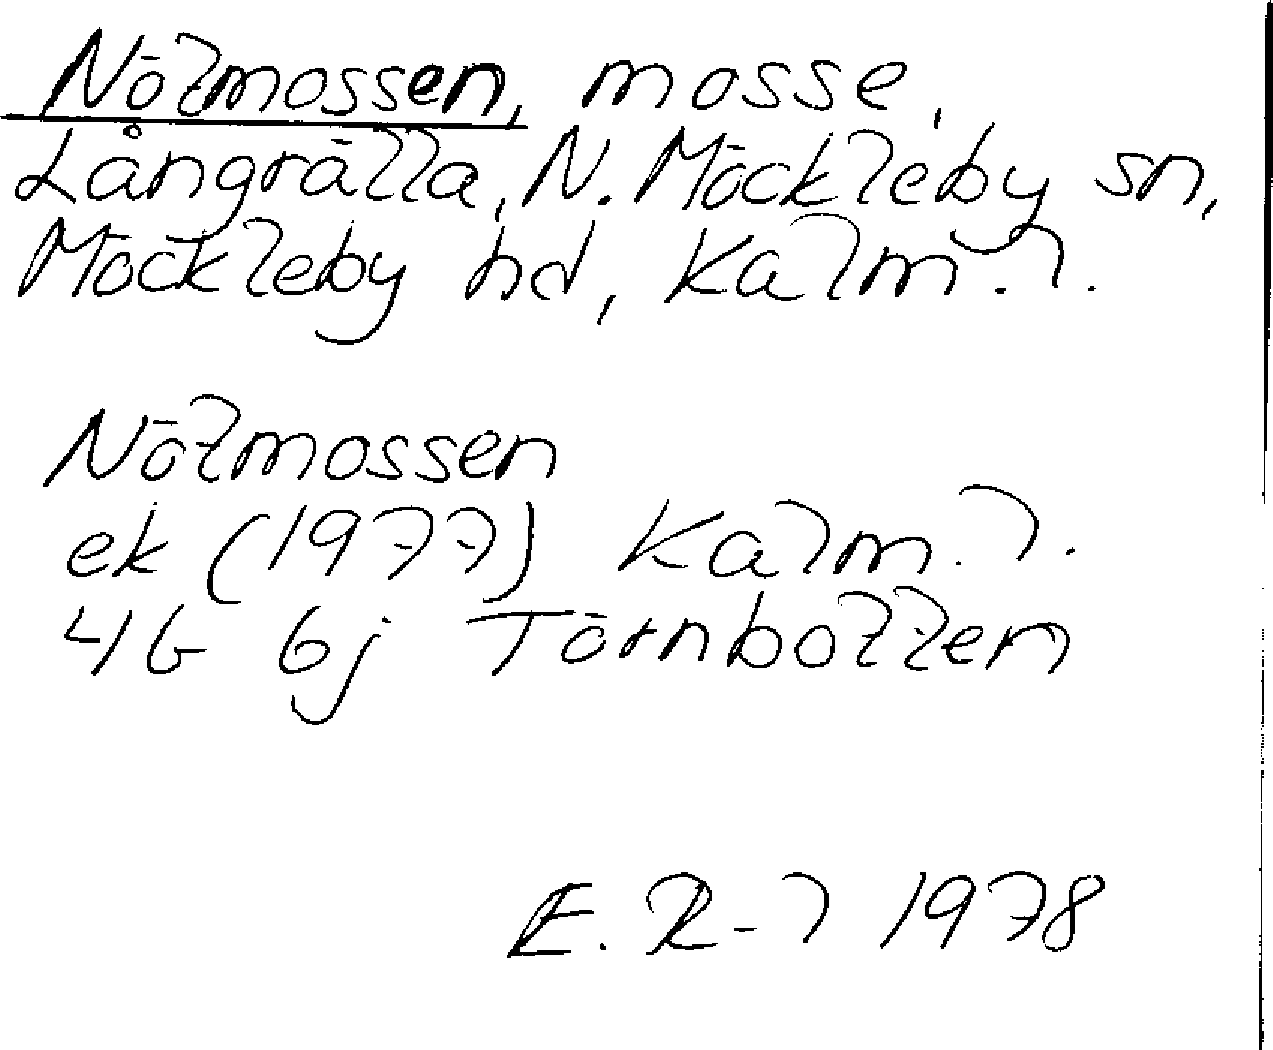 Nötmossen, mosse,
Långrälla, N. Möckleby sn,
Möckleby hd, Kalm. l.
Nötmossen
ek (1977) Kalm. l.
4G 6j Törnbotten
E. R-l 1978